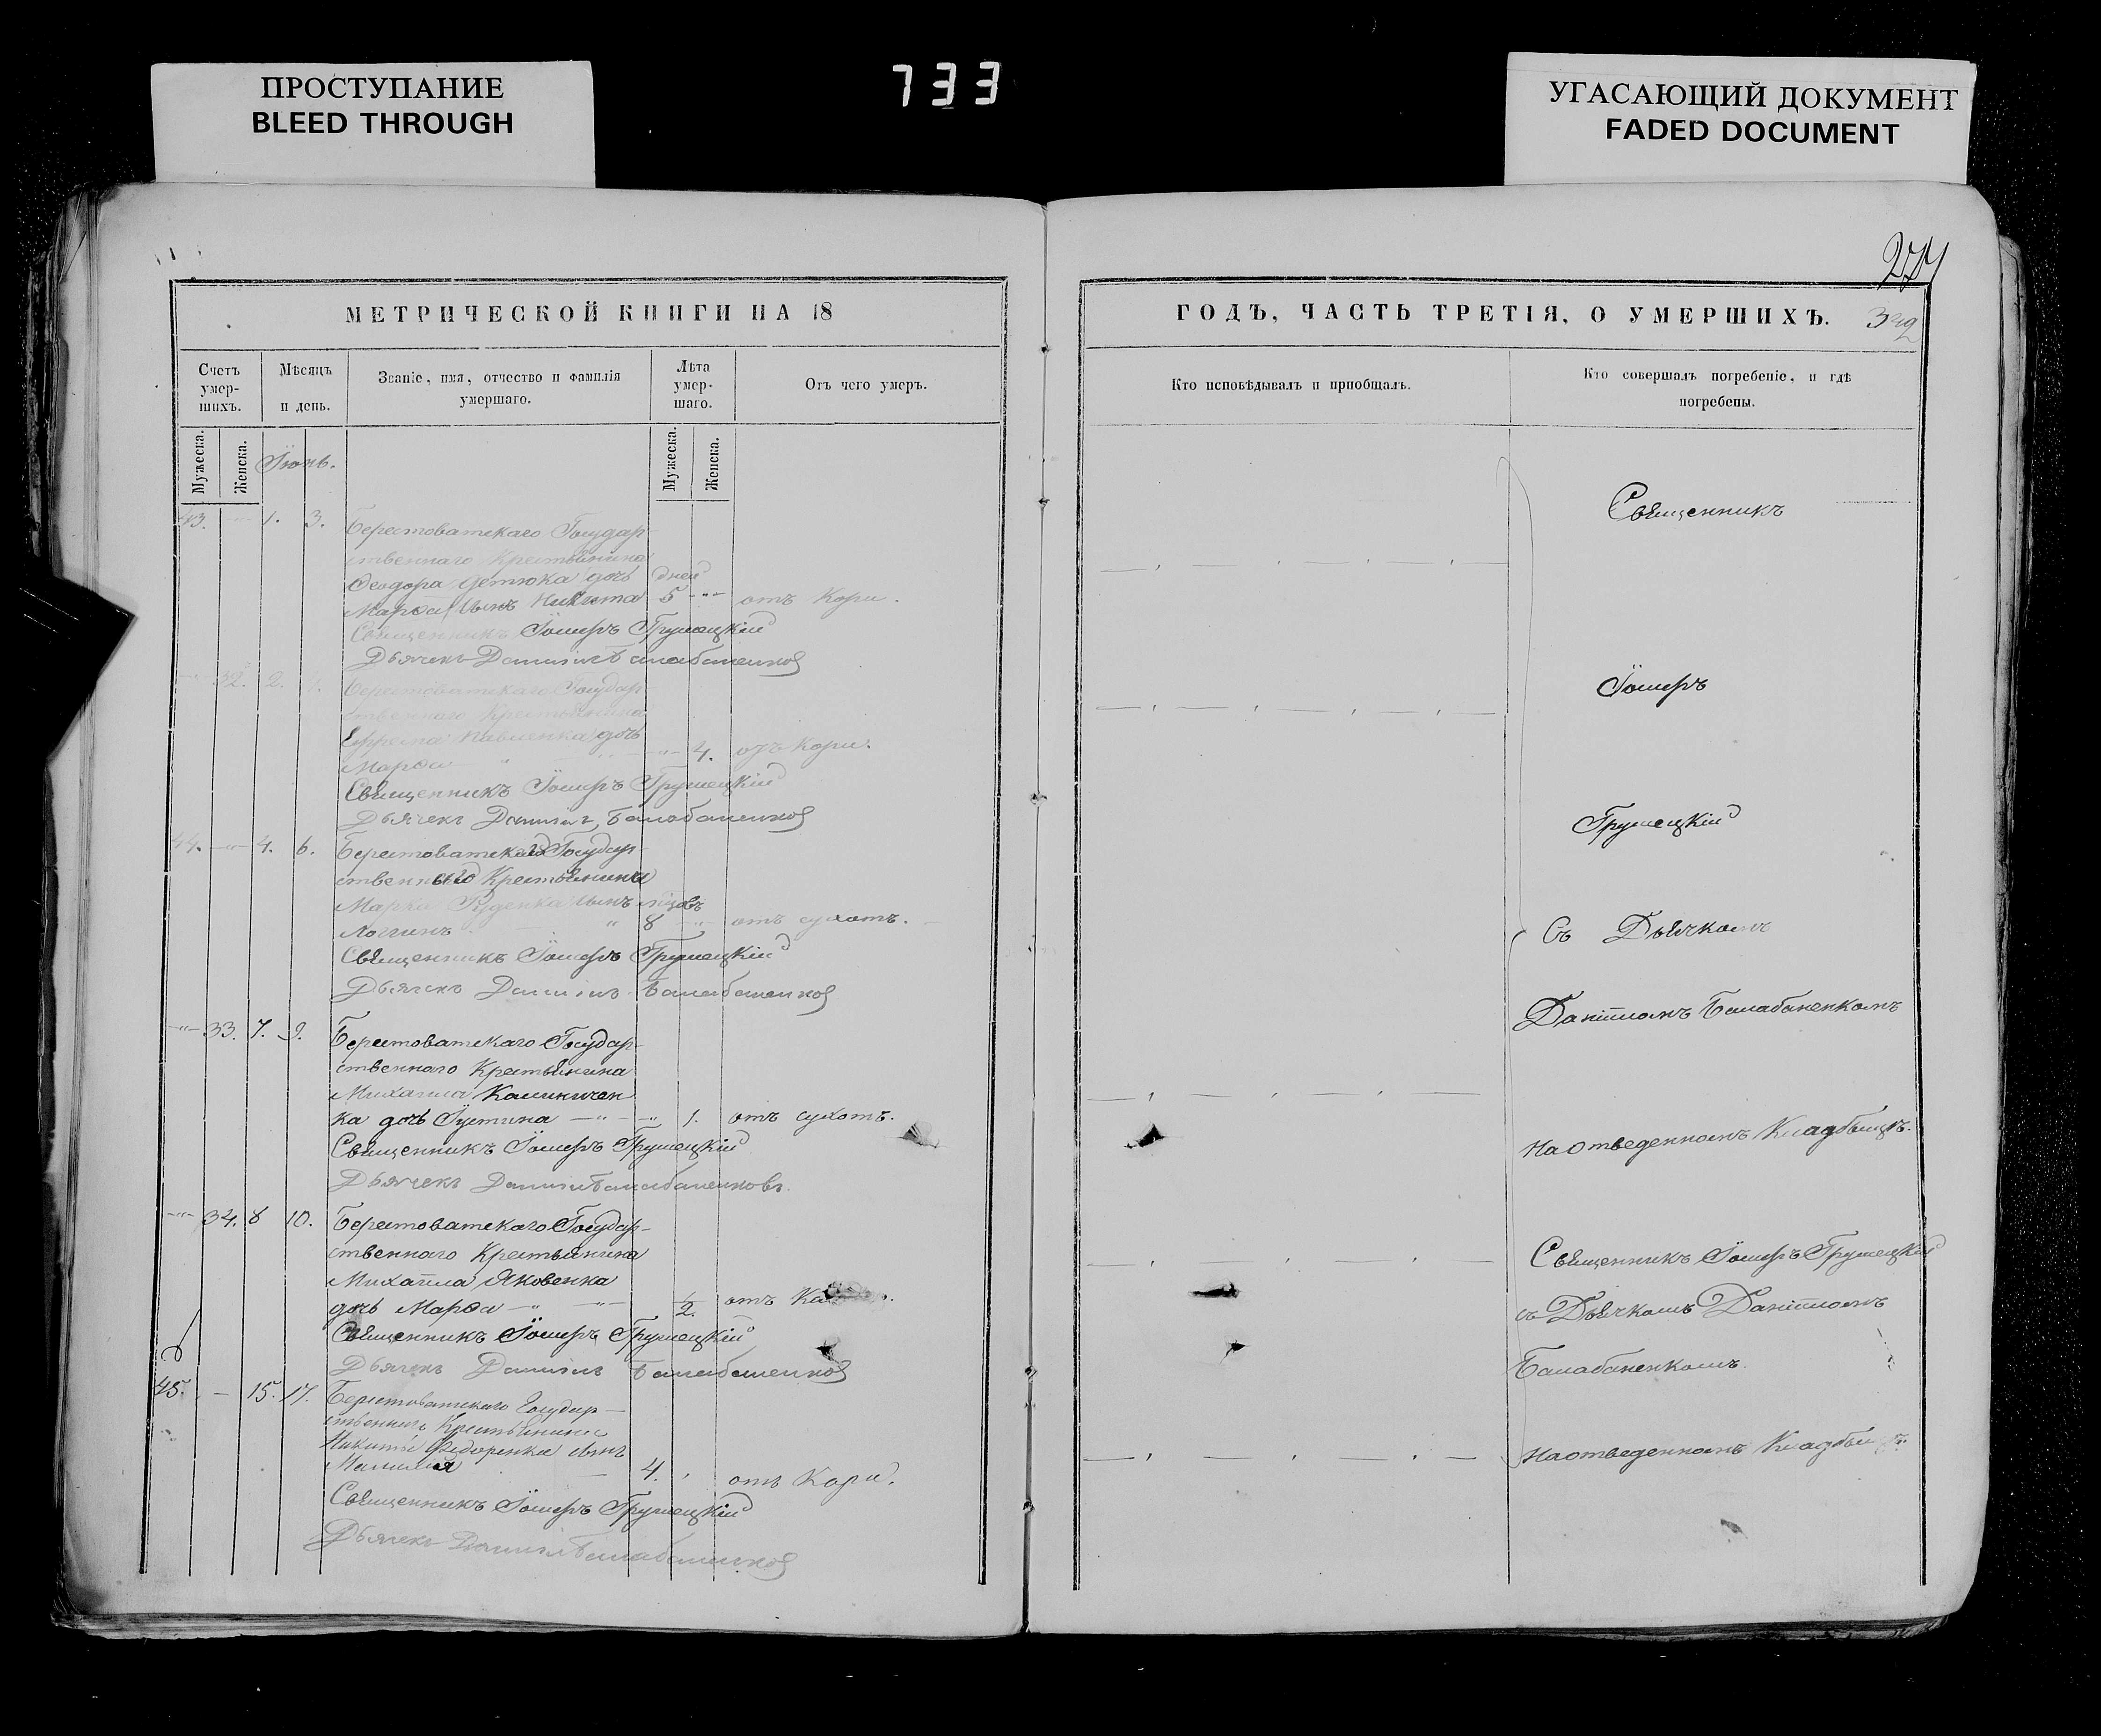 ПРОСТУПАНИЕ
BLEED THROUGH
733
УГАСАЮЩИЙ ДОКУМЕНТ
FADED DOCUMENT
МЕТРИЧЕСКОЙ КНИГИ НА 18
Счетъ умер-шихъ.
Мѣсяцъ и день.
Званіе, имя, отчество и фамилія умершаго.
Лѣта умер-шаго.
Отъ чего умеръ.
Мужеска.
Женска.
Іюнь.
Мужеска.
Женска.
43. 1. 3. Берестоватскаго Государ-
ственнаго Крестьянина
Феодора дочь дней
Марфа сынъ Никита 5 отъ Кори.
Священникъ Іосифъ Грушецкій
Дьячекъ Даніилъ Балабаненковъ
32. 2. Берестоватскаго Государ-
ственнаго Крестьянина
Ефрема Павленка дочь
Марфа 4. отъ Кори.
Священникъ Іосифъ Грушецкій
Дьячекъ Даніилъ Балабаненковъ
44. 4. 6. Берестоватскаго Государ-
ственнаго Крестьянина
Марка Руденка сынъ
Логгинъ 8 отъ сухотъ.
Священникъ Іосифъ Грушецкій
Дьячекъ Даніилъ Балабаненковъ
33. 7. 9. Берестоватскаго Государ-
ственнаго Крестьянина
Михаила Калиничен
ка дочь Іустина 1. отъ сухотъ.
Священникъ Іосифъ Грушецкій
Дьячекъ Даніилъ Балабаненковъ.
34. 8 10. Берестоватскаго Государ-
ственнаго Крестьянина
Михаила Яковенка
дочь Марфа 1/2. отъ
Священникъ Іосифъ Грушецкій
Дьячекъ Даніилъ Балабаненковъ
45. 15. 17. Берестоватскаго Государ-
ственнаго Крестьянина
Никиты Федоренка сынъ
4. отъ Кори.
Священникъ Іосифъ Грушецкій
Дьячекъ Даніилъ Балабаненковъ
274
ГОДЪ, ЧАСТЬ ТРЕТІЯ, О УМЕРШИХЪ.
Кто исповѣдывалъ и пріобщалъ.
Кто совершалъ погребеніе, и гдѣ погребены.
Священникъ
Іосифъ
Грушецкій
Съ Дьячкомъ
Даніиломъ Балабаненкомъ
На отведенномъ Кладбищѣ.
Священникъ Іосифъ Грушецкій
съ Дьячкомъ Даніиломъ
Балабаненкомъ.
На отведенномъ Кладбищѣ.